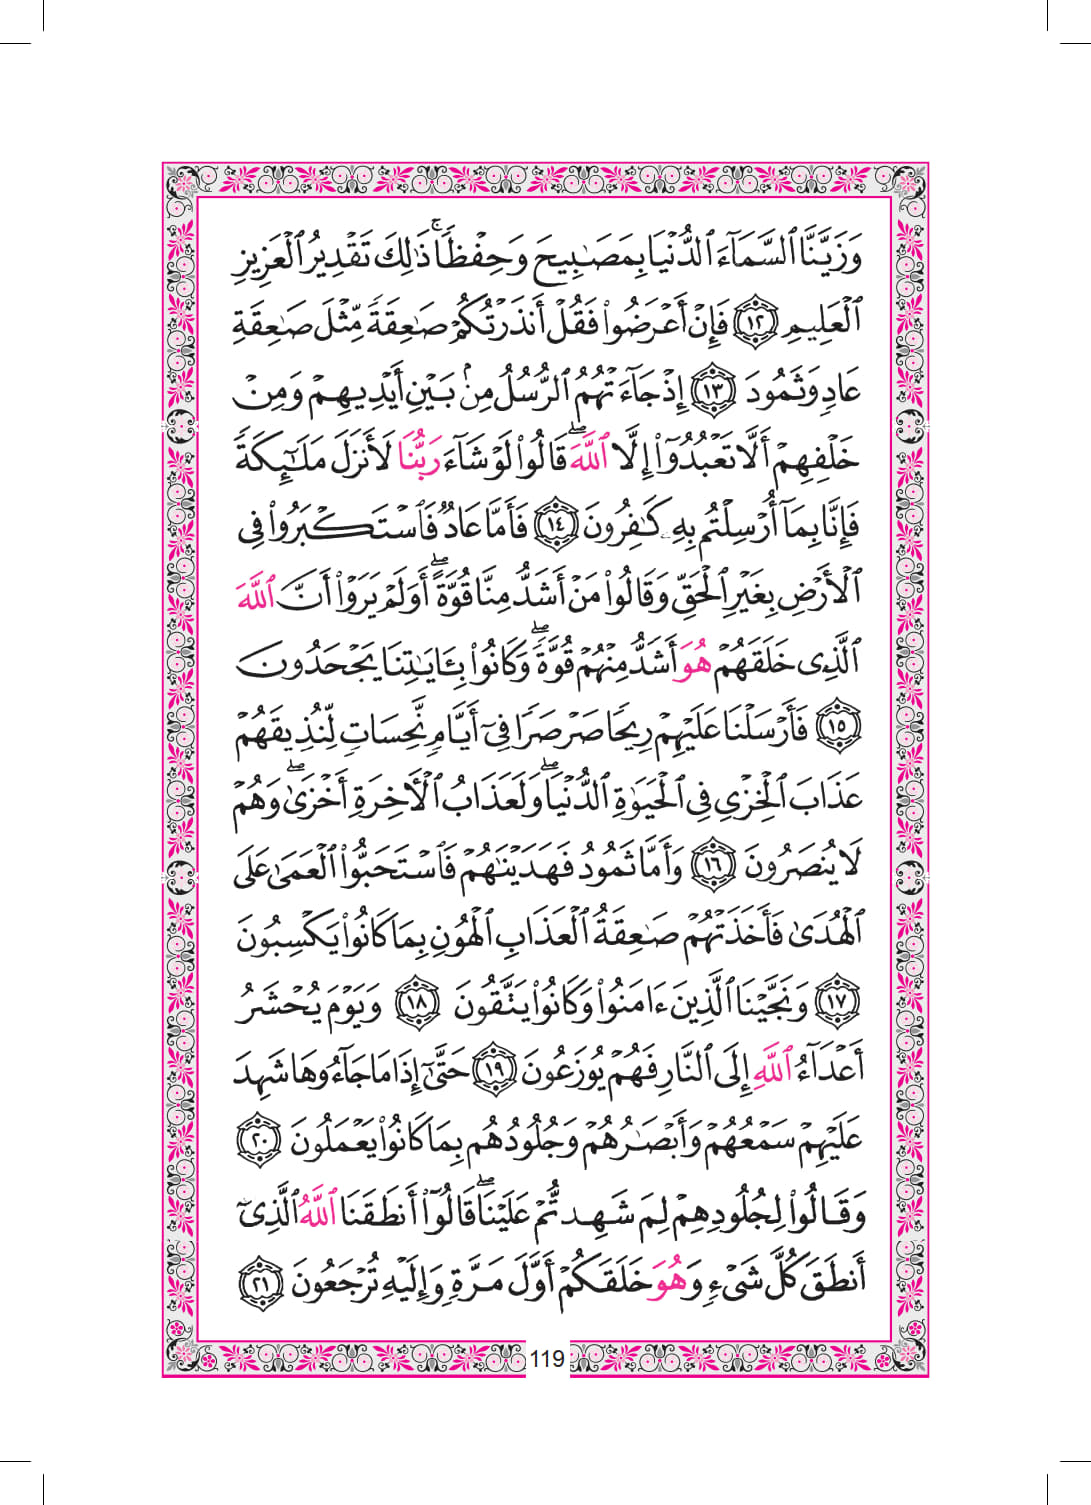 وَزَيَّنَّا ٱلسَّمَآءَ ٱلدُّنْيَا بِمَصَٰبِيحَ وَحِفْظًا ۚ ذَٰلِكَ تَقْدِيرُ ٱلْعَزِيزِ
ٱلْعَلِيمِ ١٢ فَإِنْ أَعْرَضُوا۟ فَقُلْ أَنذَرْتُكُمْ صَٰعِقَةً مِّثْلَ صَٰعِقَةِ
عَادٍ وَثَمُودَ ١٣ إِذْ جَآءَتْهُمُ ٱلرُّسُلُ مِنۢ بَيْنِ أَيْدِيهِمْ وَمِنْ
خَلْفِهِمْ أَلَّا تَعْبُدُوٓا۟ إِلَّا ٱللَّهَ ۖ قَالُوا۟ لَوْ شَآءَ رَبُّنَا لَأَنزَلَ مَلَٰٓئِكَةً
فَإِنَّا بِمَآ أُرْسِلْتُم بِهِۦ كَٰفِرُونَ ١٤ فَأَمَّا عَادٌ فَٱسْتَكْبَرُوا۟ فِى
ٱلْأَرْضِ بِغَيْرِ ٱلْحَقِّ وَقَالُوا۟ مَنْ أَشَدُّ مِنَّا قُوَّةً ۖ أَوَلَمْ يَرَوْا۟ أَنَّ ٱللَّهَ
ٱلَّذِى خَلَقَهُمْ هُوَ أَشَدُّ مِنْهُمْ قُوَّةً ۖ وَكَانُوا۟ بِـَٔايَٰتِنَا يَجْحَدُونَ
١٥ فَأَرْسَلْنَا عَلَيْهِمْ رِيحًا صَرْصَرًا فِىٓ أَيَّامٍ نَّحِسَاتٍ لِّنُذِيقَهُمْ
عَذَابَ ٱلْخِزْىِ فِى ٱلْحَيَوٰةِ ٱلدُّنْيَا ۖ وَلَعَذَابُ ٱلْـَٔاخِرَةِ أَخْزَىٰ ۖ وَهُمْ
لَا يُنصَرُونَ ١٦ وَأَمَّا ثَمُودُ فَهَدَيْنَٰهُمْ فَٱسْتَحَبُّوا۟ ٱلْعَمَىٰ عَلَى
ٱلْهُدَىٰ فَأَخَذَتْهُمْ صَٰعِقَةُ ٱلْعَذَابِ ٱلْهُونِ بِمَا كَانُوا۟ يَكْسِبُونَ
١٧ وَنَجَّيْنَا ٱلَّذِينَ ءَامَنُوا۟ وَكَانُوا۟ يَتَّقُونَ ١٨ وَيَوْمَ يُحْشَرُ
أَعْدَآءُ ٱللَّهِ إِلَى ٱلنَّارِ فَهُمْ يُوزَعُونَ ١٩ حَتَّىٰٓ إِذَا مَا جَآءُوهَا شَهِدَ
عَلَيْهِمْ سَمْعُهُمْ وَأَبْصَٰرُهُمْ وَجُلُودُهُم بِمَا كَانُوا۟ يَعْمَلُونَ ٢٠
وَقَالُوا۟ لِجُلُودِهِمْ لِمَ شَهِدتُّمْ عَلَيْنَا ۖ قَالُوٓا۟ أَنطَقَنَا ٱللَّهُ ٱلَّذِىٓ
أَنطَقَ كُلَّ شَىْءٍ وَهُوَ خَلَقَكُمْ أَوَّلَ مَرَّةٍ وَإِلَيْهِ تُرْجَعُونَ ٢١
119